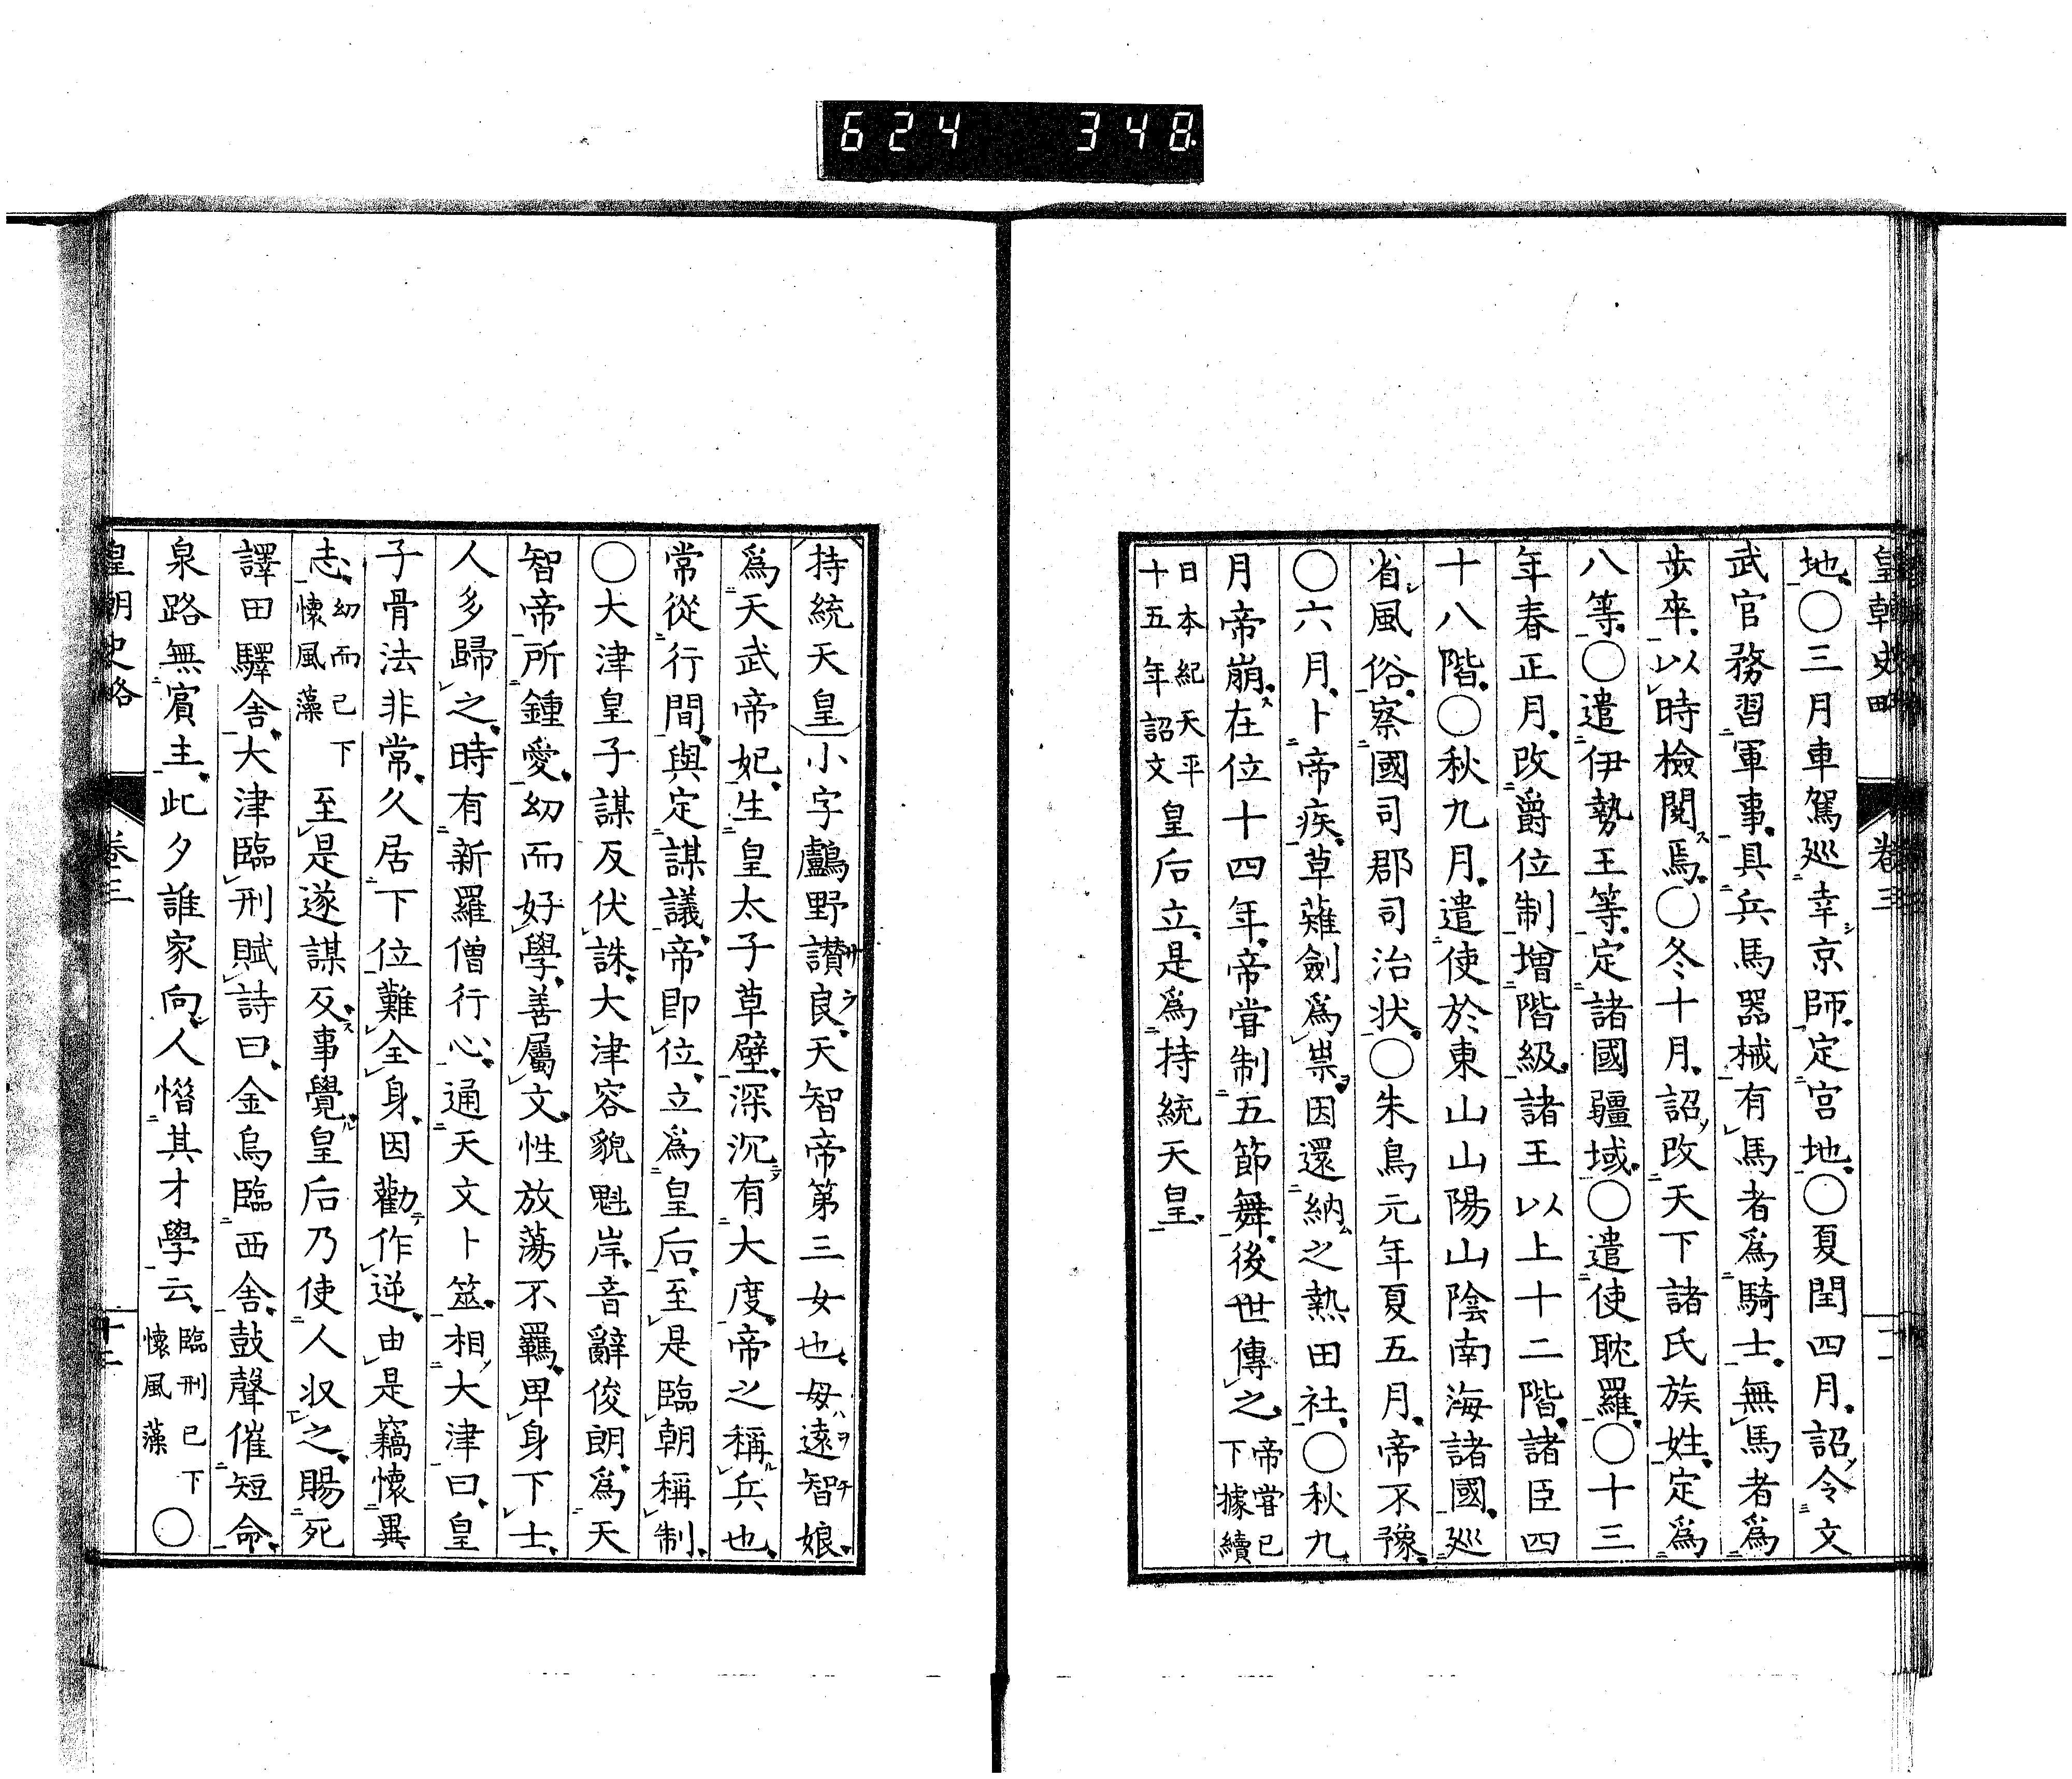 624 348
皇朝史略 卷三
地。○三月車駕巡幸京師。定宮地。○夏閏四月。詔令文
武官務習軍事。具兵馬器械有馬者爲騎士。無馬者爲
步卒。以時檢閱焉。○冬十月。詔改天下諸氏族姓。定爲
八等。○遣伊勢王等。定諸國疆域。○遣使耽羅。○十三
年春正月。改爵位制增階級。諸王以上十二階。諸臣四
十八階。○秋九月。遣使於東山山陽山陰南海諸國。巡
省風俗。察國司郡司治狀。○朱鳥元年夏五月。帝不豫。
○六月。卜帝疾。草薙劍爲祟。因還納之熱田社。○秋九
月帝崩。在位十四年。帝甞制五節舞。後世傳之。帝甞已下據續
日本紀天平十五年詔文皇后立。是爲持統天皇。
持統天皇小字鸕野讃良。天智帝第三女也。母遠智娘。
爲天武帝妃。生皇太子草壁。深沉有大度。帝之稱兵也。
常從行間。與定謀議。帝卽位。立爲皇后。至是臨朝稱制。
○大津皇子謀反伏誅。大津容貌魁岸。音辭俊朗。爲天
智帝所鍾愛。幼而好學。善屬文。性放蕩不羈。卑身下士。
人多歸之。時有新羅僧行心。通天文卜筮。相大津曰。皇
子骨法非常。久居下位難全身。因勸作逆。由是竊懷異
志。幼而已下懷風藻至是遂謀反。事覺皇后乃使人収之。賜死
譯田驛舍。大津臨刑賦詩曰。金烏臨西舍。鼓聲催短命。
泉路無賓主。此夕誰家向。人惜其才學云。臨刑已下懷風藻○
皇朝史略 卷三 十二